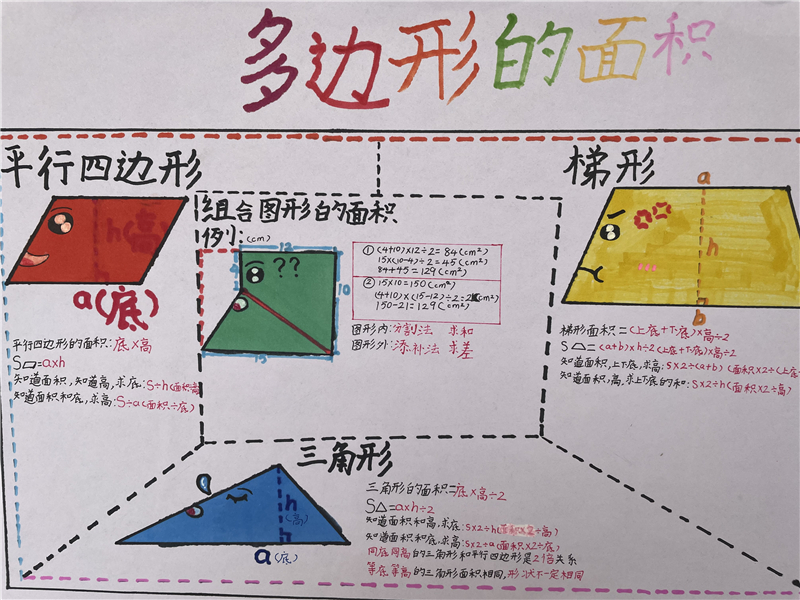 多边形的面积
平行四边形
h(高)
a(底)
平行四边形的面积:底×高
S▱=a×h
知道面积,知道高,求底:S÷h(面积÷高)
知道面积和底,求高:S÷a(面积÷底)
组合图形的面积
例:(cm)
12
4
??
10
15
①(4+10)×12÷2=84(cm²)
15×(10-4)÷2=45(cm²)
84+45=129(cm²)
②15×10=150(cm²)
(4+10)×(15-12)÷2=21(cm²)
150-21=129(cm²)
图形内:分割法 求和
图形外:添补法 求差
梯形
a
h
b
梯形面积=(上底+下底)×高÷2
S△=(a+b)×h÷2(上底+下底)×高÷2
知道面积,上下底,求高:S×2÷(a+b)(面积×2÷(上底
知道面积,高,求上下底的和:S×2÷h(面积×2÷高)
三角形
h
(高)
h
a(底)
三角形的面积=底×高÷2
S△=a×h÷2
知道面积和高,求底:S×2÷h(面积×2÷高)
知道面积和底,求高:S×2÷a(面积×2÷底)
同底同高的三角形和平行四边形是2倍关系
等底等高的三角形面积相同,形状不一定相同